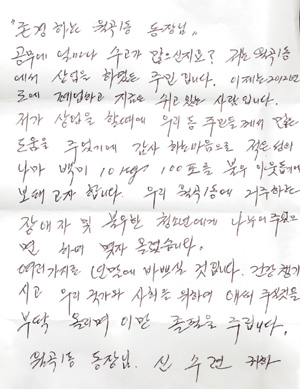 "존경하는 월곡1동 동장님"
공무에 얼마나 수고가 많으신지요? 저는 월곡1동
에서 상업을 하였든 주민 입니다. 이제는 2020년
도에 폐업하고 지금은 쉬고 있는 사람 입니다.
저가 상업을 할 때에 우리 동 주민들께서 많은
도움을 주셨기에 감사 하는 마음으로 적은 성의
나마 백미 10kg 100포를 불우 이웃돕기에
보태고자 합니다. 우리 월곡1동에 거주하는
장애자 및 불우한 청소년에게 나누어 주셨으
면 하며 몇자 올렸습니다.
여러가지로 년말에 바쁘실 것 입니다. 건강 챙기
시고 우리 국가와 사회를 위하여 애써 주실것을
부탁 올리며 이만 졸필을 주립니다.
월곡1동 동장님. 신수건 귀하